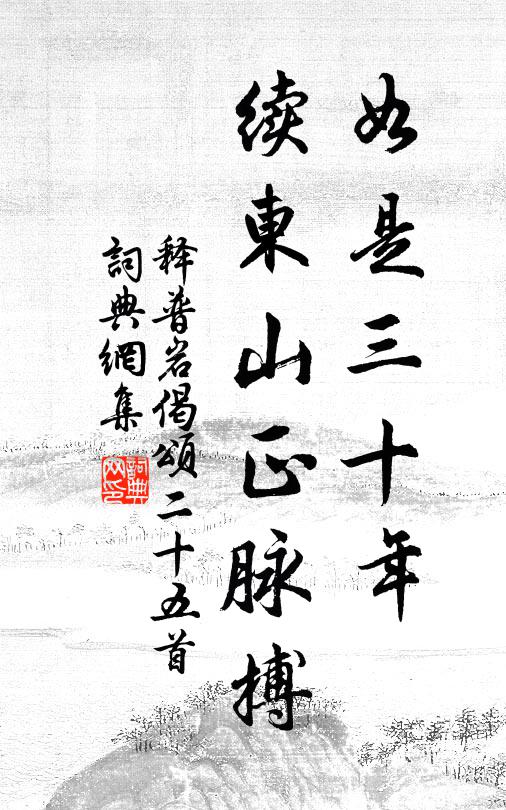 如是三十年
續東山正脉搏
释普岩偈頌二十五首
詞典網集
詞典
网印